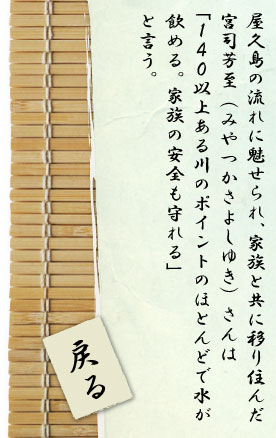 屋久島の流れに魅せられ、家族と共に移り住んだ
宮司芳至（みやつかさよしゆき）さんは
「140以上ある川のポイントのほとんどで水が
飲める。家族の安全も守れる」
と言う。
戻る